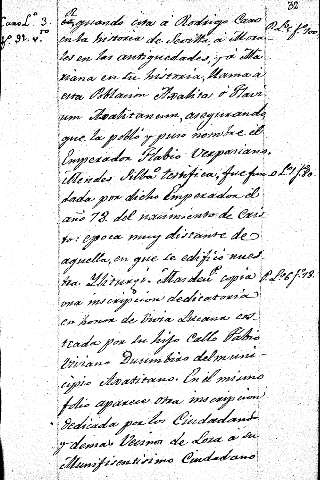 32
R. quando cita á Rodrigo Caro
en la historia de Sevilla, á Mora-
les en las antiguedades, y á Ma-
riana en su historia, llama a
esta Poblacion Axalitas ó Flavi-
um Axalitanum, asegurando
que la pobló y puso nombre el
Emperador Flabio Vespasiano.
Mendes Silba testifica, fue fun-
dada por dicho Emperador el
año 73. del nacimiento de Cris-
to: epoca muy distante de
aquella, en que se edificó nues-
tra Yliturgi. copia
una inscripcion dedicatoria
en honor de Lucana cos-
teada por su hijo Fabio
Viviano Duumbiro del muni-
cipio Axatitano. En el mismo
folio aparece otra inscripcion
dedicada por los Ciudadanos
y demas Vecinos de Lora á su
Munifisentisimo Ciudadano